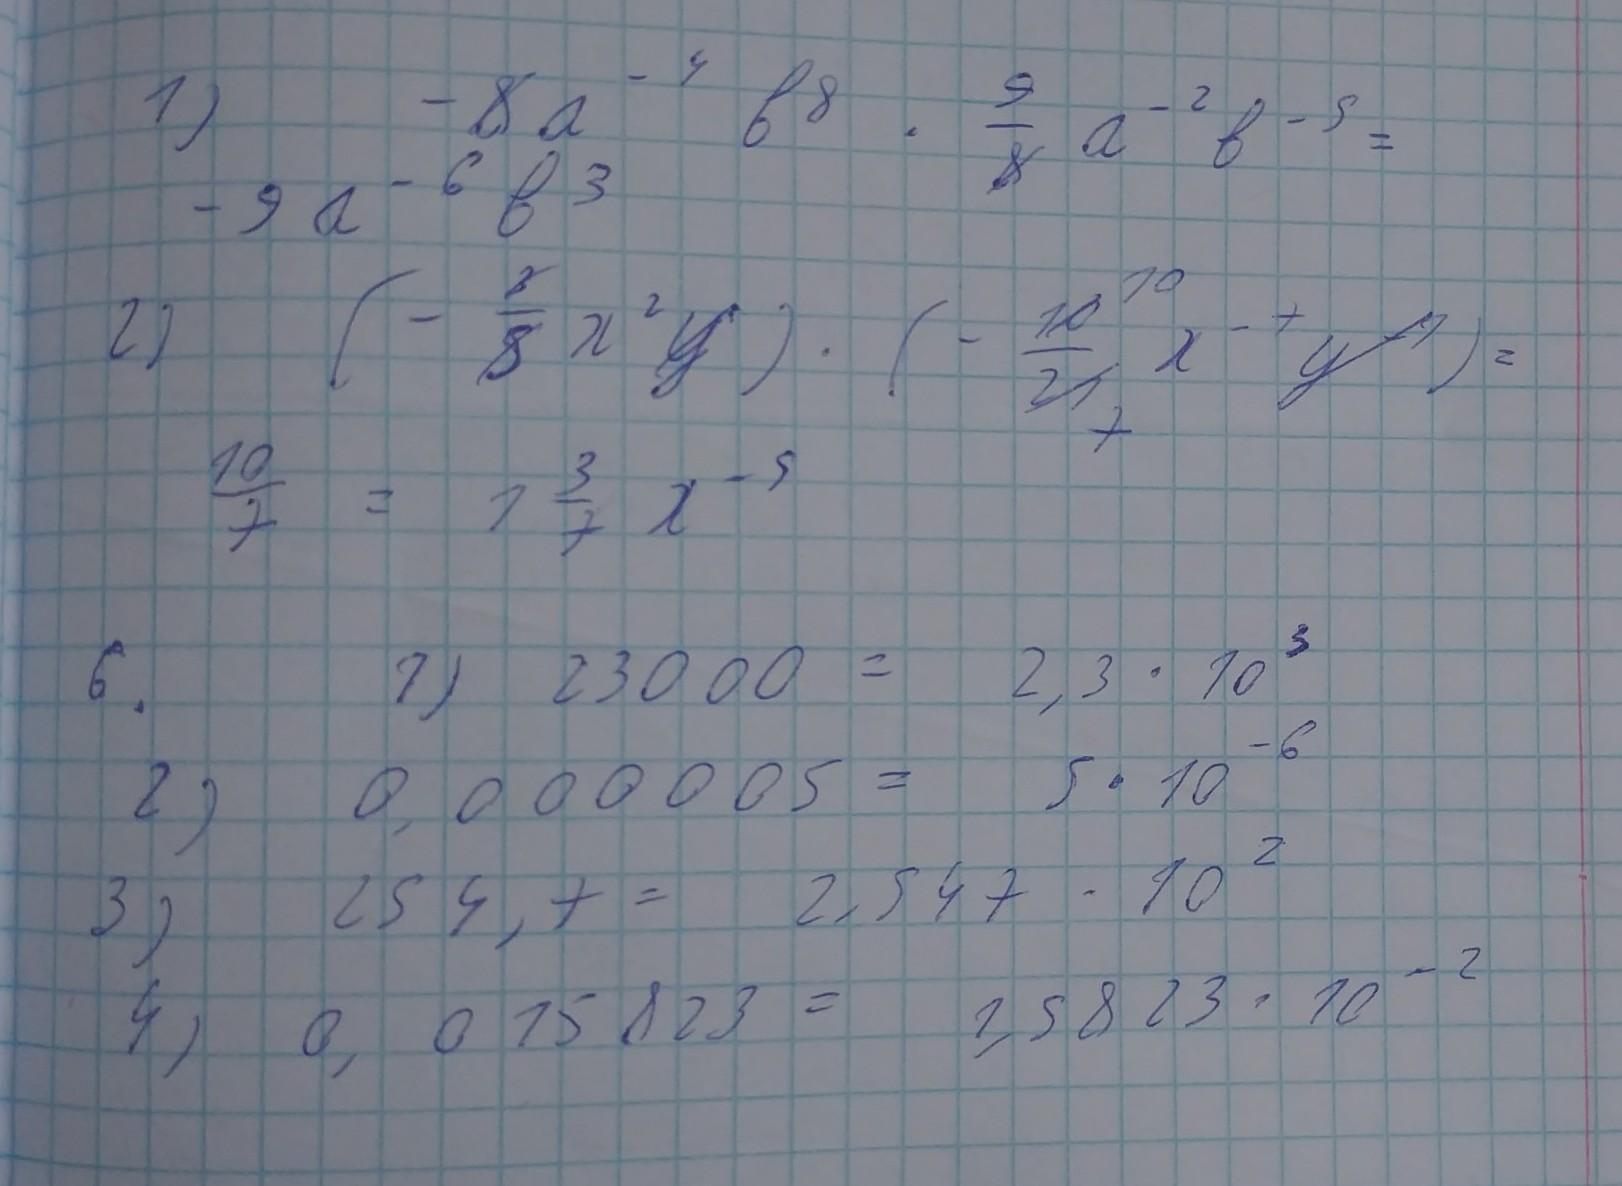 1) -8a⁻⁴ b⁸ · 9/8 a⁻² b⁻⁵ =
-9a⁻⁶ b³
2) (- /8 x²y) · (- 10/21 10 7 x⁻⁷ y⁻¹) =
10/7 = 1 3/7 x⁻⁵
6. 1) 23000 = 2,3 · 10³
2) 0,000005 = 5 · 10⁻⁶
3) 254,7 = 2,547 · 10²
4) 0,015823 = 1,5823 · 10⁻²